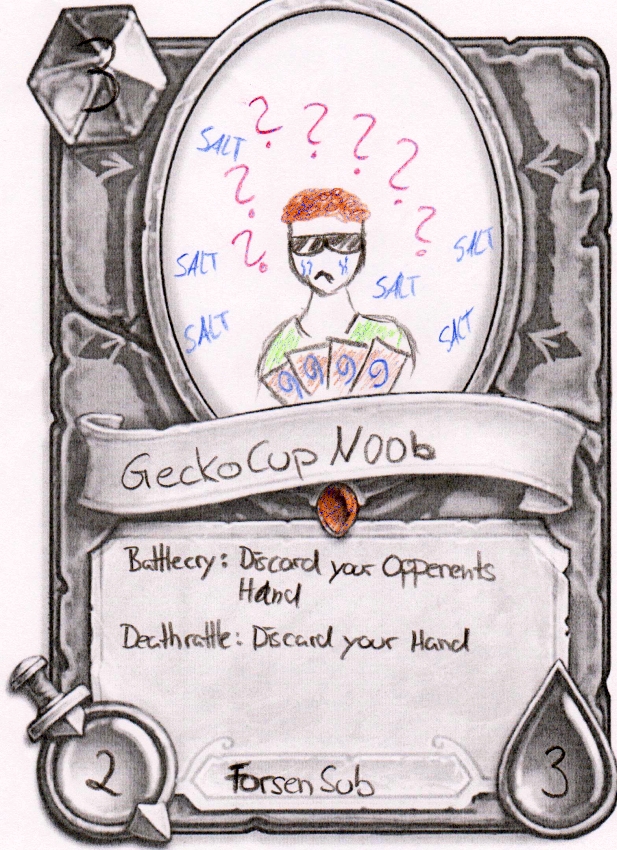 3
? ? ? ? ? ? ?
SALT
SALT
SALT
SALT
SALT
SALT
GeckoCup Noob
Battlecry: Discard your Oppenents
Hand
Deathrattle: Discard your Hand
2
Forsen Sub
3